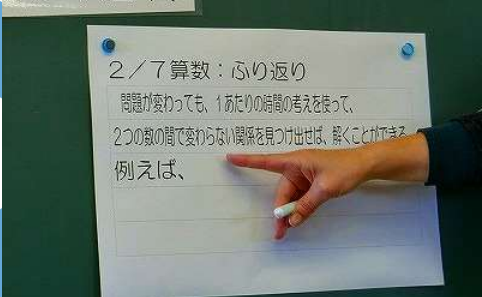 2/7算数：ふり返り
問題が変わっても、1あたりの時間の考えを使って、
2つの数の間で変わらない関係を見つけ出せば、解くことができる
例えば、